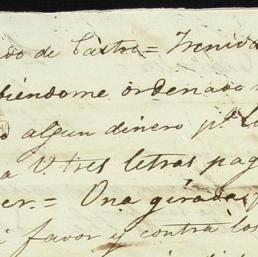 do de Castro = Trenida
biéndome ordenado
o algun dinero pa. la
a V. tres letras pag
er. = Una girada
i favor y contra los